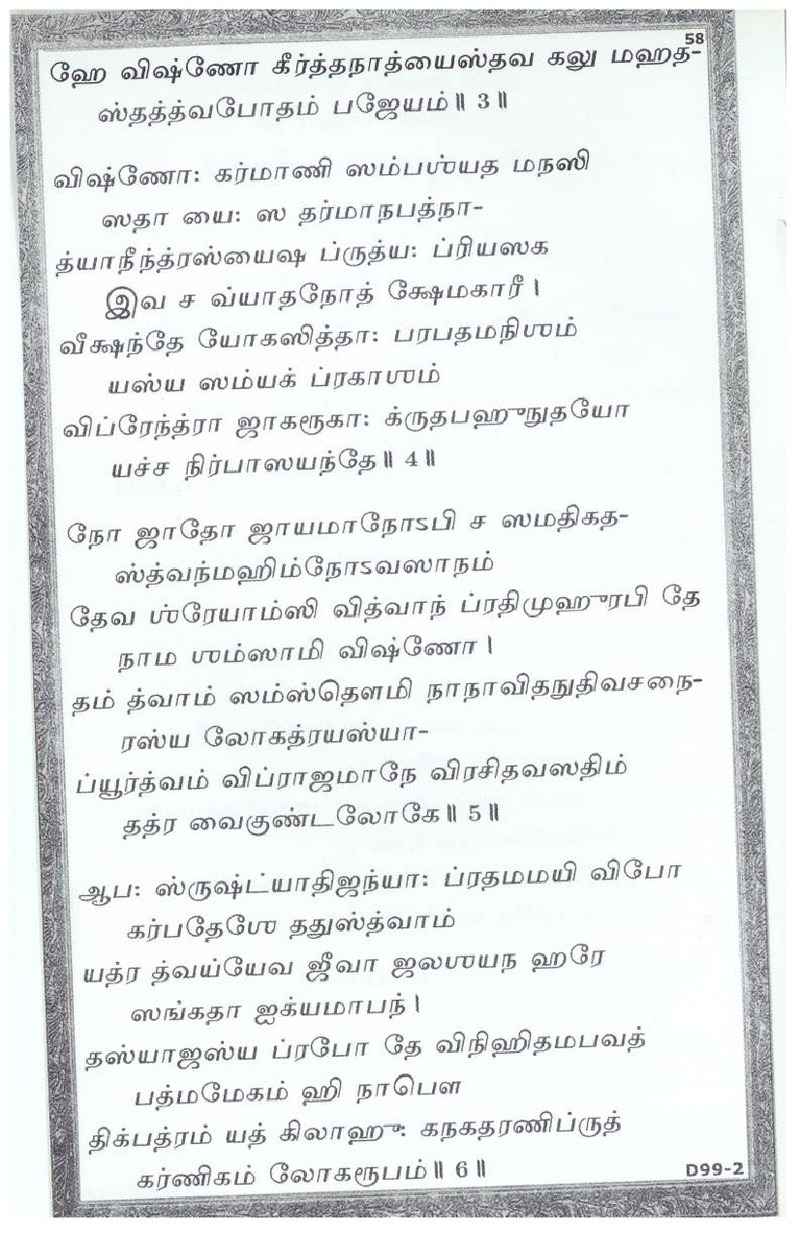 58
ஹே விஷ்ணோ கீர்த்தநாத்யைஸ்தவ கலு மஹத-
ஸ்தத்த்வபோதம் பஜேயம்॥ 3॥
விஷ்ணோ: கர்மாணி ஸம்பஶ்யத மநஸி
ஸதா யை: ஸ தர்மாநபத்நா-
த்யாநீந்த்ரஸ்யைஷ ப்ருத்ய: ப்ரியஸக
இவ ச வ்யாதநோத் க்ஷேமகாரீ।
வீக்ஷந்தே யோகஸித்தா: பரபதமநிஶம்
யஸ்ய ஸம்யக் ப்ரகாஶம்
விப்ரேந்த்ரா ஜாகரூகா: க்ருதபஹுநுதயோ
யச்ச நிர்பாஸயந்தே॥ 4॥
நோ ஜாதோ ஜாயமாநோऽபி ச ஸமதிகத-
ஸ்த்வந்மஹிம்நோऽவஸாநம்
தேவ ஶ்ரேயாம்ஸி வித்வாந் ப்ரதிமுஹுரபி தே
நாம ஶம்ஸாமி விஷ்ணோ।
தம் த்வாம் ஸம்ஸ்தௌமி நாநாவிதநுதிவசநை-
ரஸ்ய லோகத்ரயஸ்யா-
ப்யூர்த்வம் விப்ராஜமாநே விரசிதவஸதிம்
தத்ர வைகுண்டலோகே॥ 5॥
ஆப: ஸ்ருஷ்ட்யாதிஜந்யா: ப்ரதமமயி விபோ
கர்பதேஶே ததுஸ்த்வாம்
யத்ர த்வய்யேவ ஜீவா ஜலஶயந ஹரே
ஸங்கதா ஐக்யமாபந்।
தஸ்யாஜஸ்ய ப்ரபோ தே விநிஹிதமபவத்
பத்மமேகம் ஹி நாபௌ
திக்பத்ரம் யத் கிலாஹு: கநகதரணிப்ருத்
கர்ணிகம் லோகரூபம்॥ 6॥
D99-2